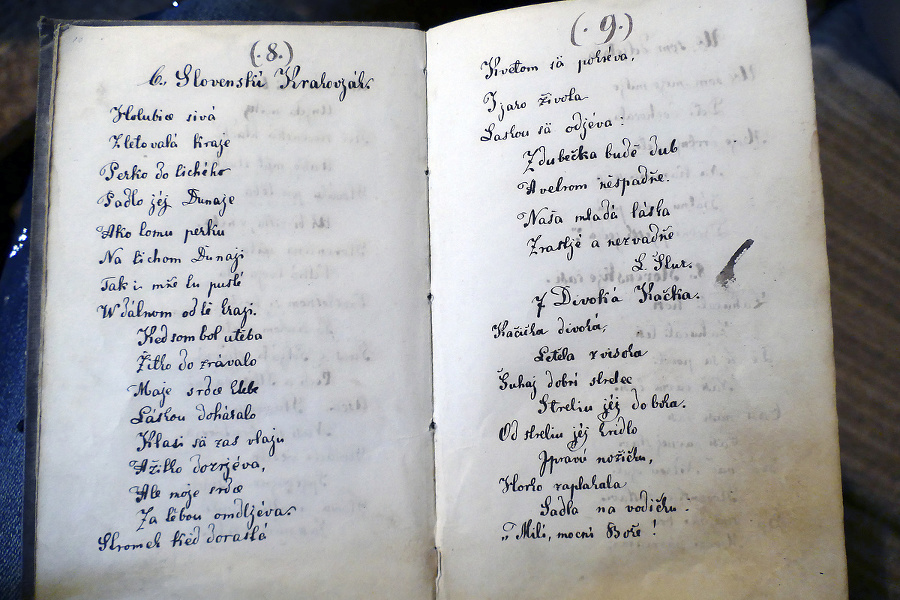 (.8.)
6., Slovenskú Krakovzák.
Holubica sivá
Zletovalá kraje
Perko do tichého
Padlo jéj Dunaje
Ako tomu perku
Na tichom Dunaji
Tak i mňe tu pusté
W dálnom od té kraji.
Ked som bol uťeba
Žitko do zrávalo
Moje srdce klebe
Láskou dohásalo
Klasi sä zas vlaju
A žitko dozrjéva,
Ale moje srdce
Za tébou omdljéva.
Stromek keď dorastá
(.9.)
Kvetom sä pokréva,
I jaro života
Laskou sä odjéva:
Z dubečka budě dub
A velrom něspadňe.
Naša mladá láska
Zrastjé a nezvadňe
L. Štur.
7 Divoká Kačka.
Kačička divoká,
Letela z visoka
Šuhaj dobrí strelec
Streliu jéj do boka.
Od streliu jéj kridlo
I pravú nožičku,
Horko zaplakala
Sadla na vodičku.
„Milí, mocní Bože!